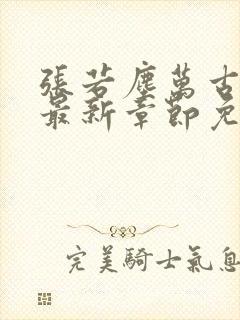 張若塵萬古
最新章節免
完美騎士氣息